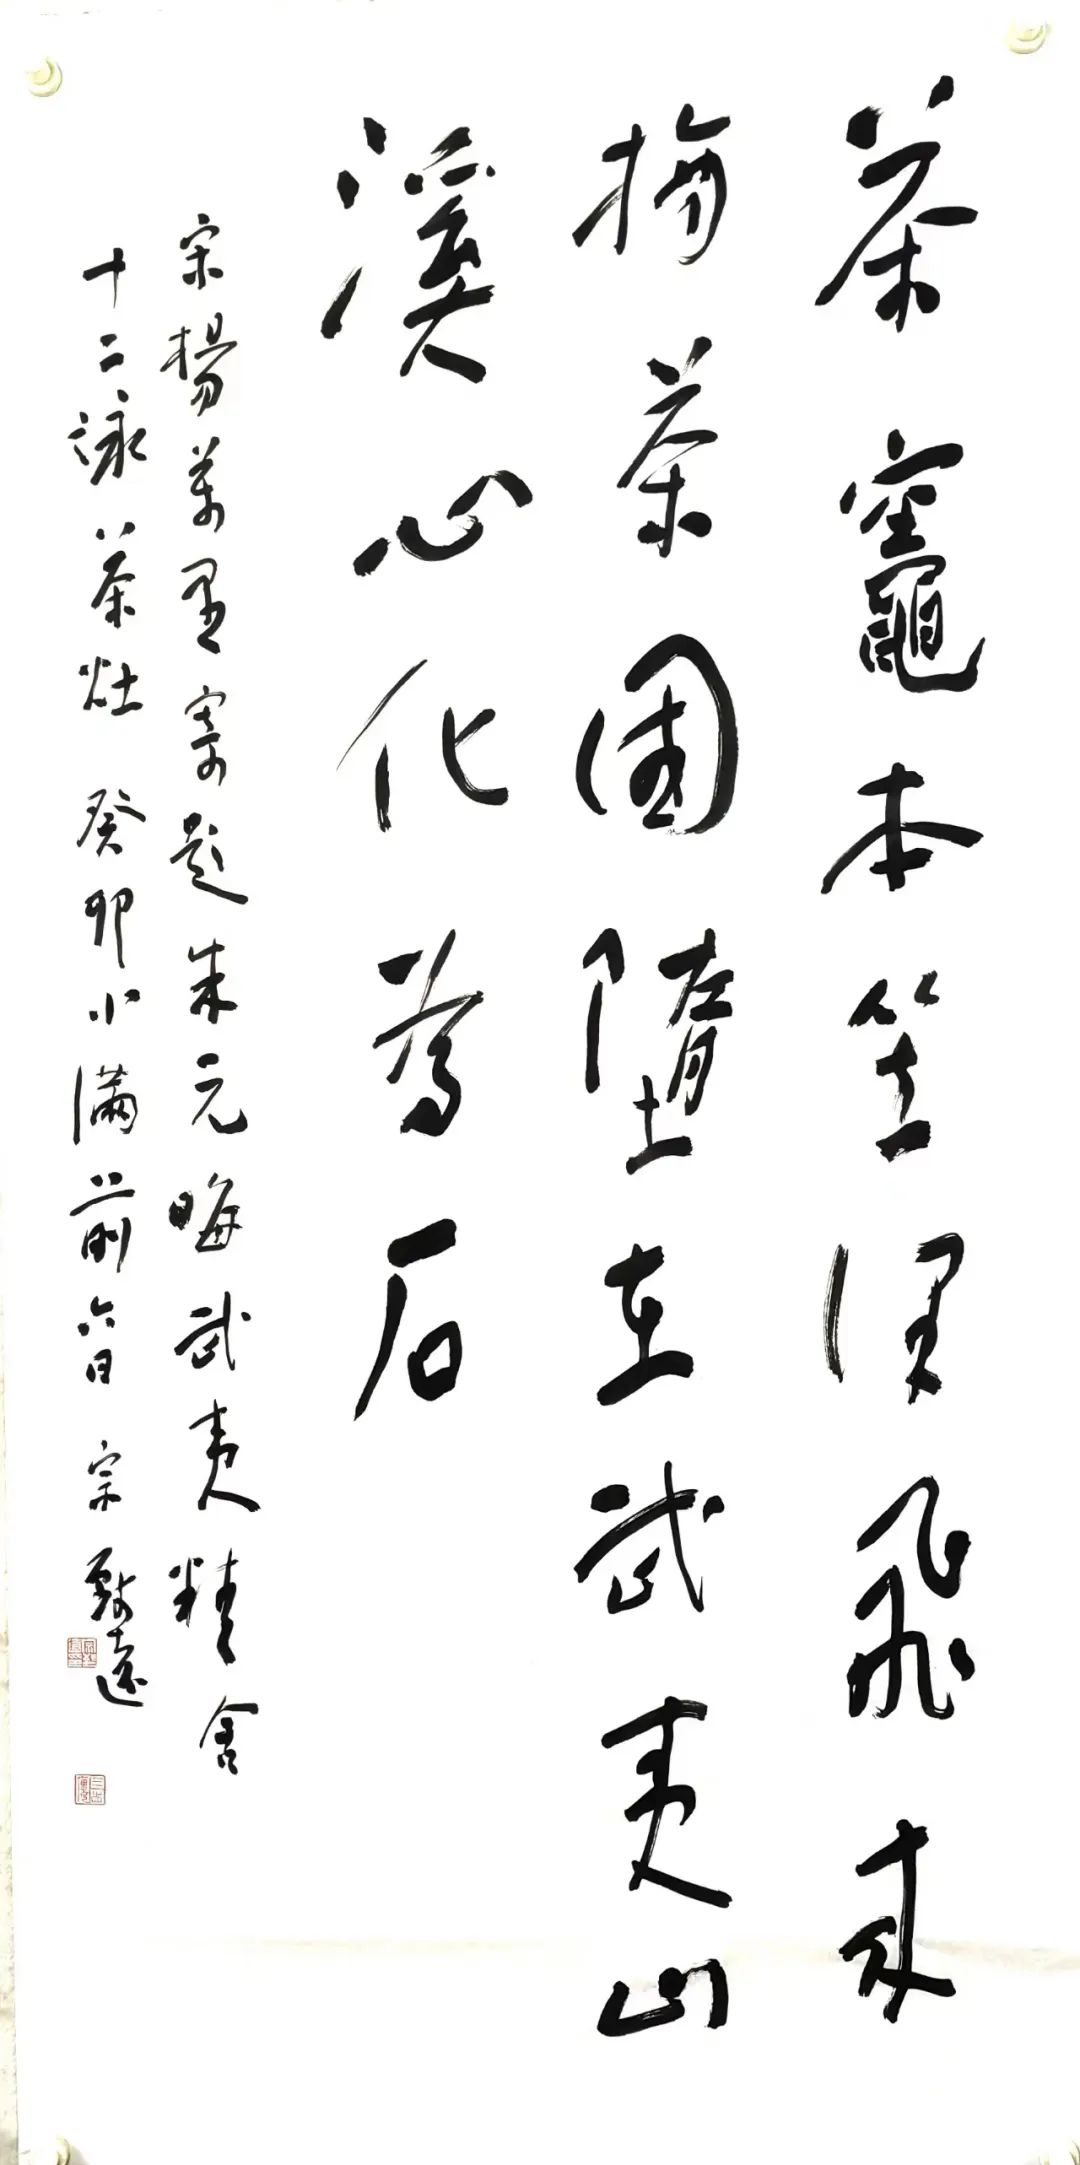 茶竈本笠澤飛來
摘茶國墮在武夷山
溪心化為石
宋楊萬里寄題朱元晦武夷精舍
十二詠茶灶 癸卯小滿前六日 宗致遠